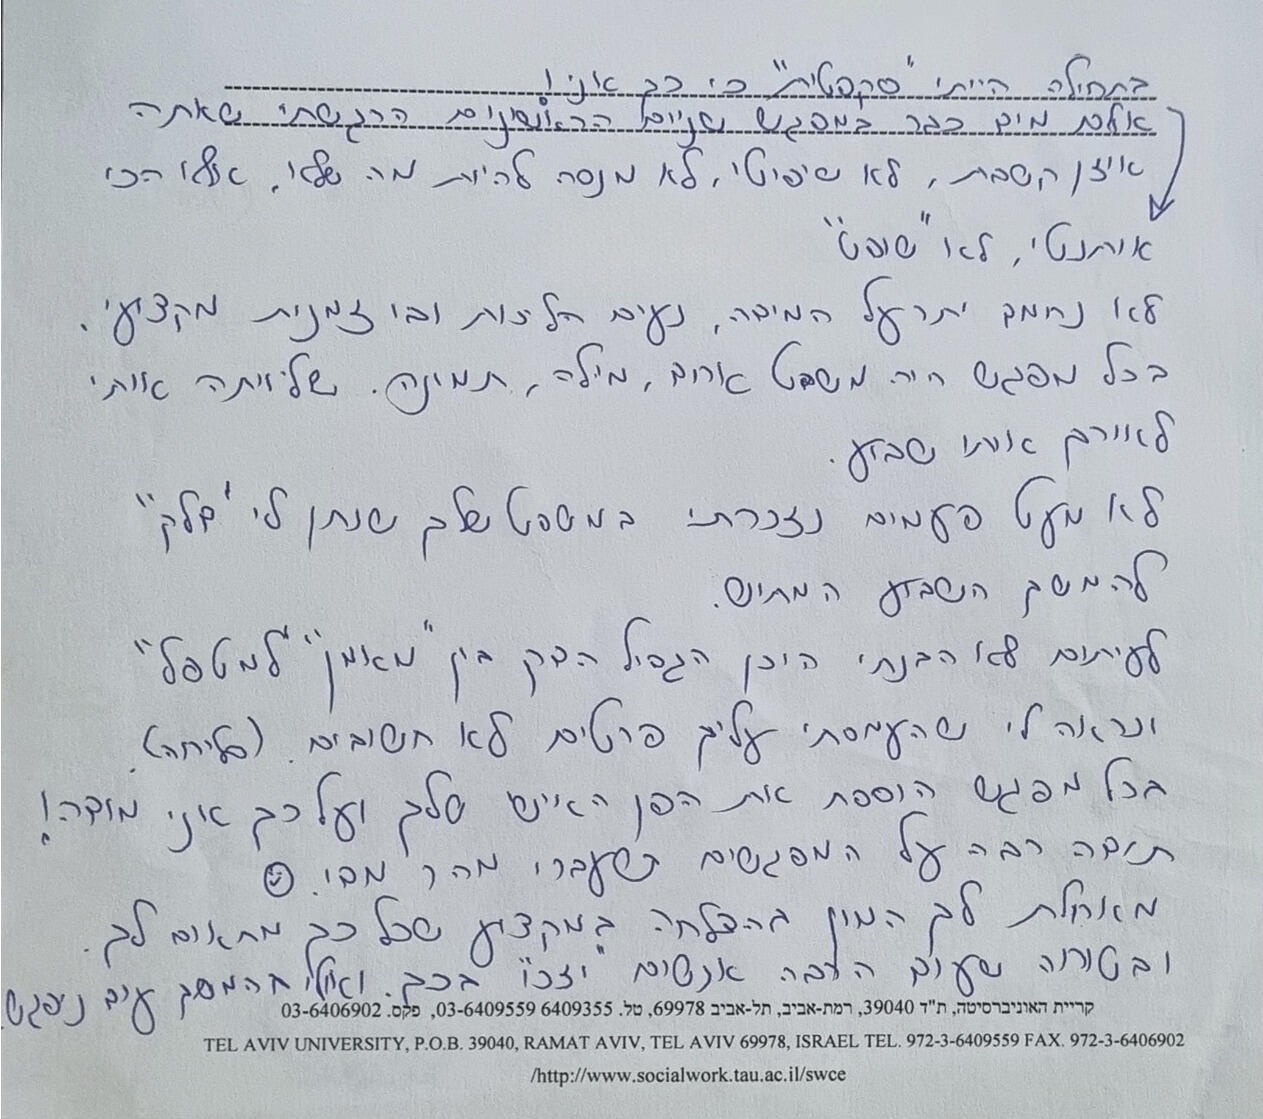 בתחילה הייתי "סקפטית" כי כך אני!
אולם מיד כבר במפגש שניים הראשונים הרגשתי שאתה
אוזן קשבת, לא שיפוטי, לא מנסה להיות מה שלא, אלא הכי
אותנטי, לא "שופט"
לא נחמד יתר על המידה, נעים הליכות ובו זמנית מקצועי.
בכל מפגש היה משפט אחד, מילה, תמונה. שליוותה אותי
לאורך אותו שבוע.
לא מעט פעמים נזכרתי במשפט שלך שנתן לי "דלק"
להמשך השבוע המתיש.
לעיתים לא הבנתי היכן הגבול הדק בין "מאמן" ל"מטפל"
ונראה לי שהעמסתי עליך פרטים לא חשובים. (סליחה).
בכל מפגש הוספת את הפן האישי שלך ועל כך אני מודה!
תודה רבה על המפגשים שעברו מהר מדי. ☺
מאחלת לך המון הצלחה במקצוע שכל כך מתאים לך.
ובטוחה שעוד הרבה אנשים "יזכו" בכך. ואולי בהמשך עוד ניפגש.
קריית האוניברסיטה, ת"ד 39040, רמת-אביב, תל-אביב 69978, טל. 6409355 03-6409559, פקס. 03-6406902
TEL AVIV UNIVERSITY, P.O.B. 39040, RAMAT AVIV, TEL AVIV 69978, ISRAEL TEL. 972-3-6409559 FAX. 972-3-6406902
/http://www.socialwork.tau.ac.il/swce